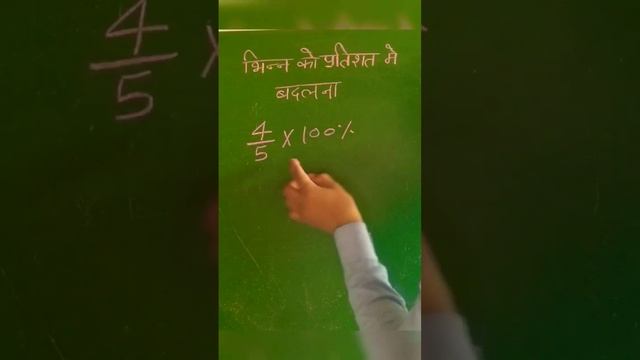 भिन्न को प्रतिशत मे
बदलना
4/5 × 100%